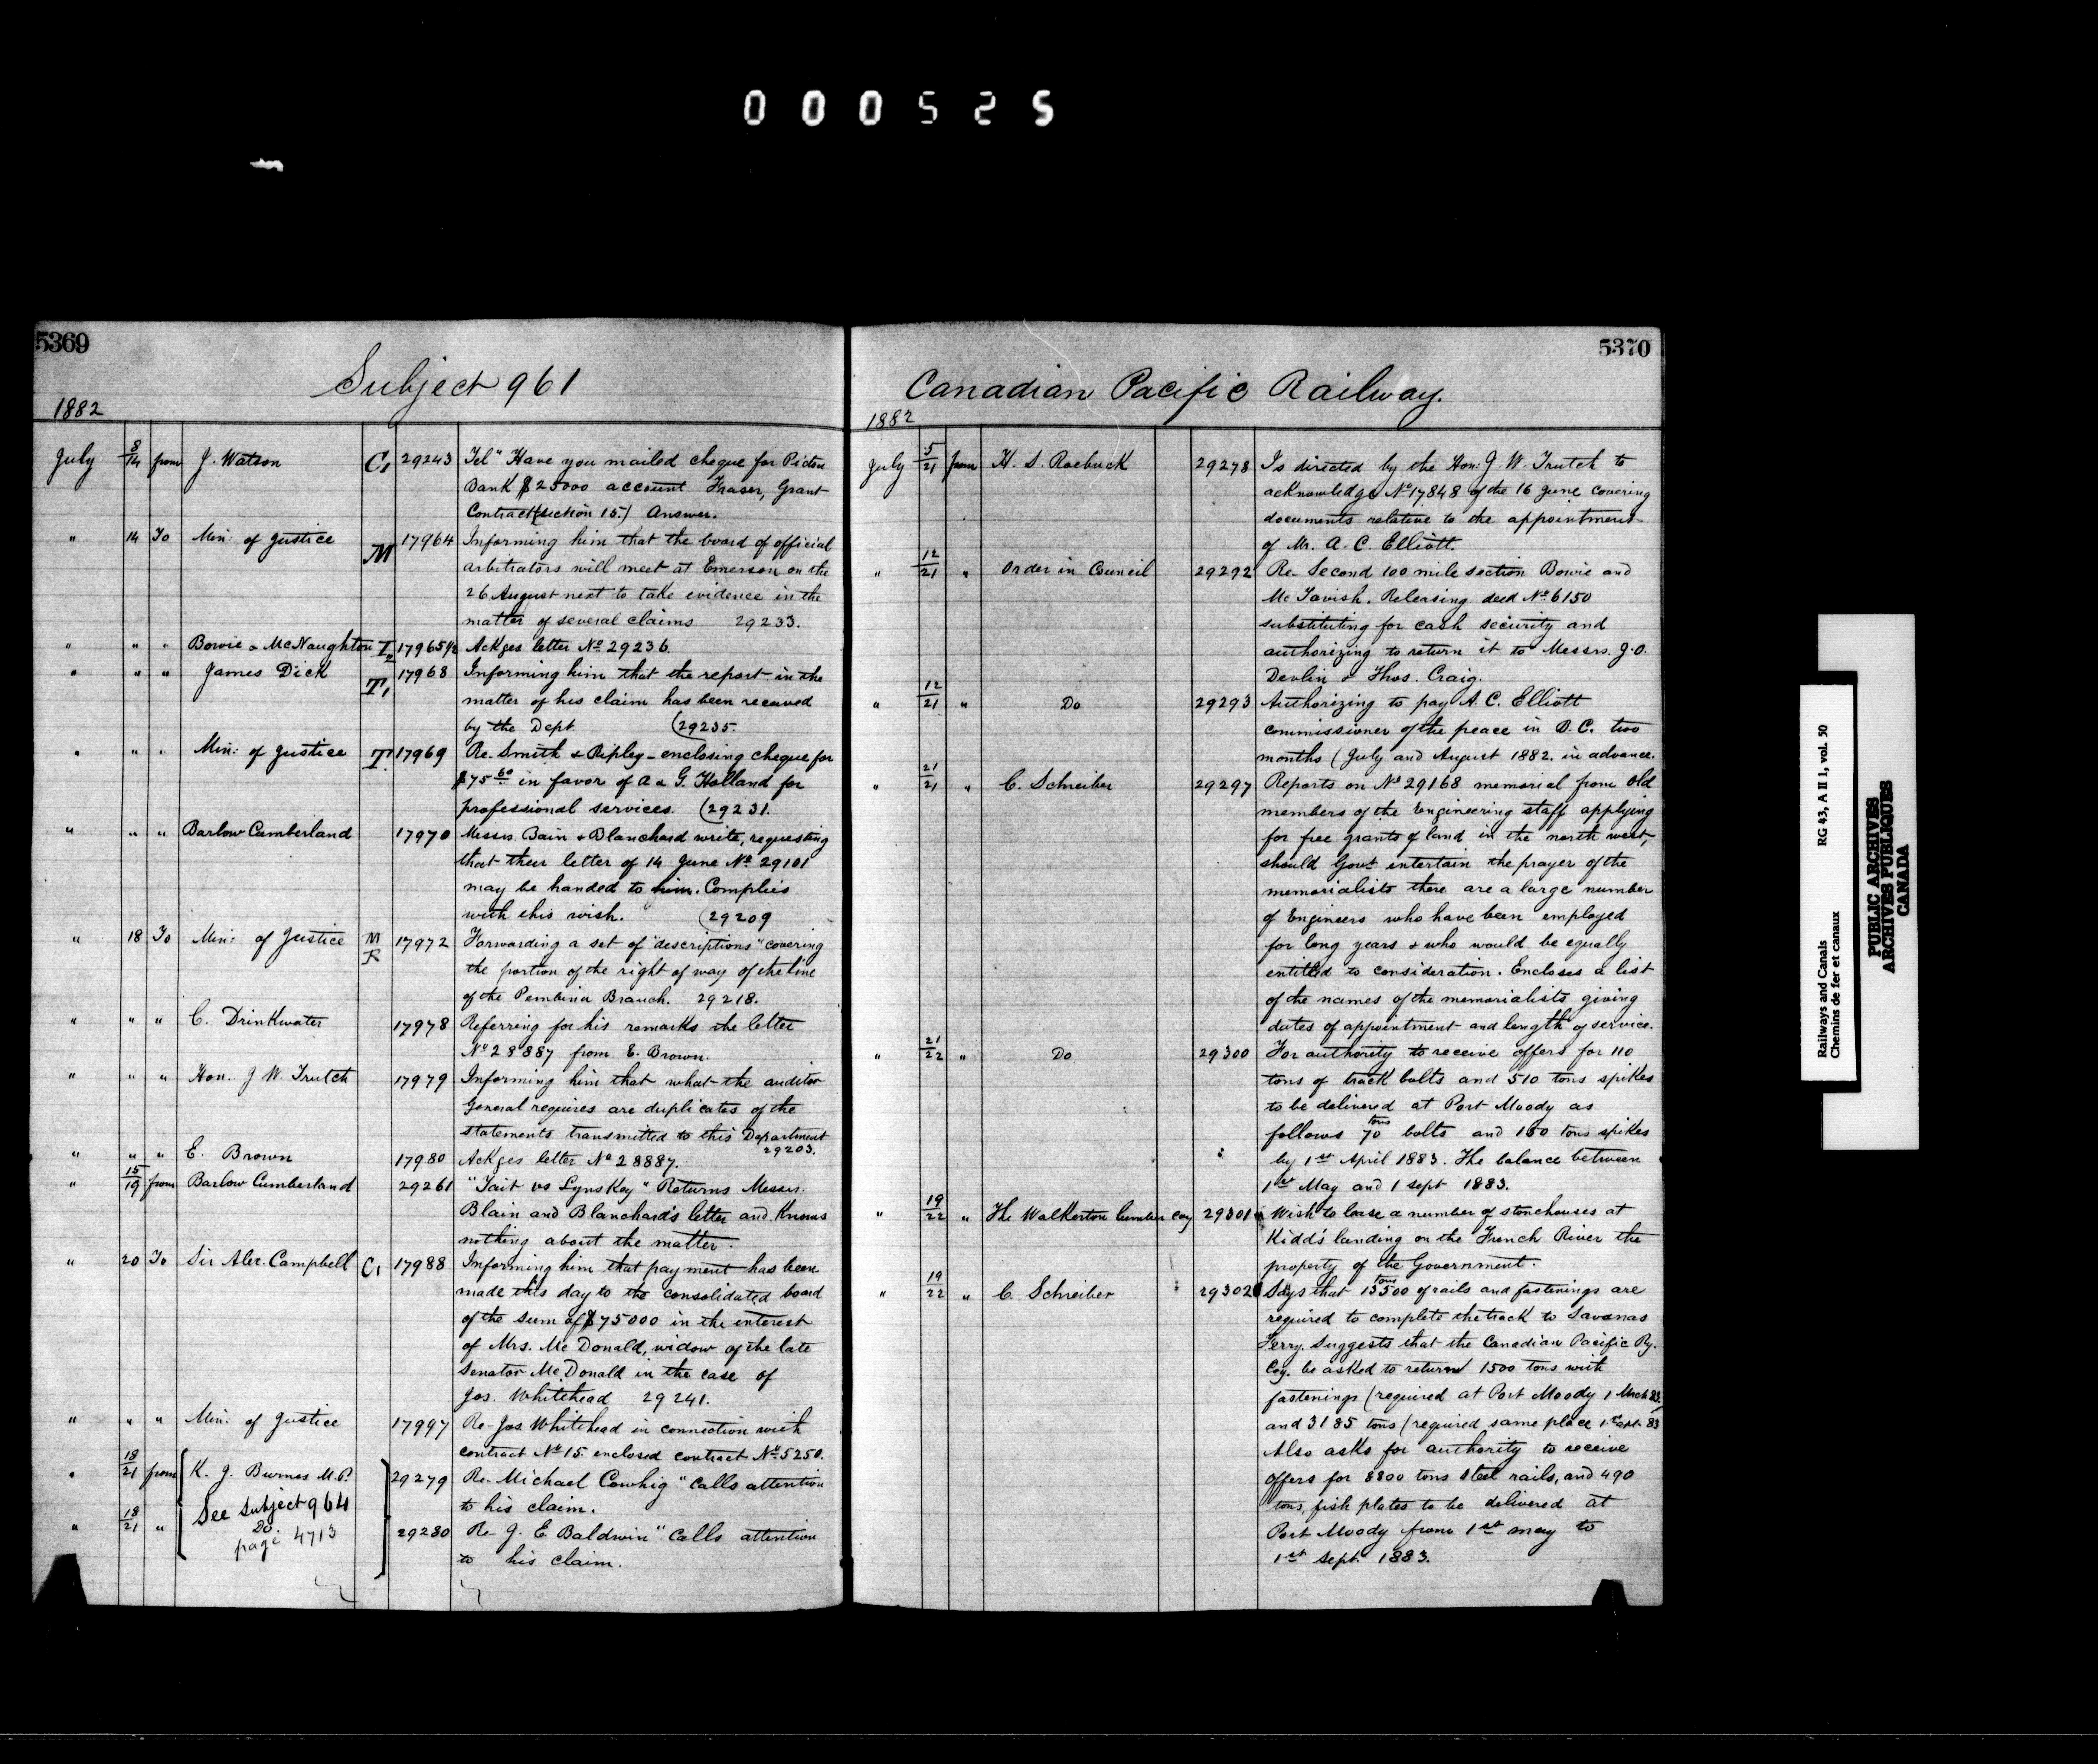 000525
5369
Subject 961
1882
July 8/14 from J. Watson C1 29243 Tel" Have you mailed cheque for Pictou
Bank $25000 account Fraser, Grant
Contract (section 15.) Answer.
" 14 To Min: of Justice M 17964 Informing him that the board of official
arbitrators will meet at Emerson on the
26 August next to take evidence in the
matter of several claims 29233.
" " " Bowie & McNaughton T2 17965½ Ackges letter No 29236.
" " " James Dick T1 17968 Informing him that the report in the
matter of his claim has been received
by the Dept. (29235.
" " " Min: of Justice T. 17969 Re. Smith & Ripley - enclosing cheque for
$75 60 in favor of A & G. Holland for
professional services. (29231.
" " " Barlow Cumberland 17970 Messrs. Bain & Blanchard write, requesting
that their letter of 14 June No 29101
may be handed to him. Complies
with this wish. (29209
" 18 To Min: of Justice M R 17972 Forwarding a set of "descriptions" covering
the portion of the right of way of the line
of the Pembina Branch. 29218.
" " " C. Drinkwater 17978 Referring for his remarks the letter
No 28887 from E. Brown.
" " " Hon. J W. Trutch 17979 Informing him that what the auditor
General requires are duplicates of the
statements transmitted to this Department
29203.
" " " E. Brown 17980 Ackges letter No 28887.
" 15/19 from Barlow Cumberland 29261 "Tait vs Lynskey" Returns Messrs.
Blain and Blanchard's letter and Knows
nothing about the matter.
" 20 To Sir Alex. Campbell C1 17988 Informing him that payment has been
made this day to the consolidated board
of the sum of $75000 in the interest
of Mrs. Mc Donald, widow of the late
Senator McDonald in the case of
Jos. Whitehead 29241.
" " " Min: of Justice 17997 Re- Jos Whitehead in connection with
contract No 15 enclosed contract No 5250.
" 18/21 from K. J. Burnes M.P. 29279 Re- Michael Cowhig" Calls attention
to his claim.
See Subject 964
Do.
page 4713
" 18/21 " 29280 Re- J. E Baldwin" Calls attention
to his claim.
5370
Canadian Pacific Railway.
1882
July 5/21 from H. S. Roebuck 29278 Is directed by the Hon: J. W. Trutch to
acknowledge No 17848 of the 16 June covering
documents relative to the appointment
of Mr. A. C. Elliott.
" 12/21 " Order in Council 29292 Re- Second 100 mile section Bowie and
Mc Tavish. Releasing deed No 6150
substituting for cash security and
authorizing to return it to Messrs. J. O.
Devlin & Thos. Craig.
" 12/21 " Do 29293 Authorizing to pay A. C. Elliott
commissioner of the peace in B.C. two
months (July and August 1882. in advance.
" 21/21 " C. Schreiber 29297 Reports on No 29168 memorial from old
members of the Engineering staff applying
for free grants of land in the north west,
should Govt entertain the prayer of the
memorialists there are a large number
of Engineers who have been employed
for long years & who would be equally
entitled to consideration. Encloses a list
of the names of the memorialists giving
dates of appointment and length of service.
" 21/22 " Do 29300 For authority to receive offers for 110
tons of track bolts and 510 tons spikes
to be delivered at Port Moody as
follows 70 tons bolts and 150 tons spikes
by 1st April 1883. The balance between
1st May and 1 sept 1883.
" 19/22 " The Walkerton lumber coy 29301 Wish to lease a number of storehouses at
Kidd's landing on the French River the
property of the Government.
" 19/22 " C. Schreiber 29302 Says that 13500 tons of rails and fastenings are
required to complete the track to Savanas
Ferry. Suggests that the Canadian Pacific Ry.
Coy. be asked to return 1500 tons with
fastenings (required at Port Moody 1 Mrch 83)
and 3185 tons (required same place 1st Sept. 83
Also asks for authority to receive
offers for 8800 tons steel rails, and 490
tons, fish plates to be delivered at
Port Moody from 1st may to
1st Sept 1883.
Railways and Canals RG 43, A II 1, vol. 50
Chemins de fer et canaux
PUBLIC ARCHIVES
ARCHIVES PUBLIQUES
CANADA